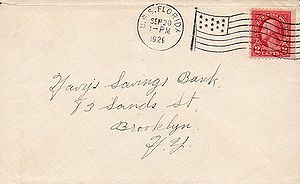 U.S.S. FLORIDA
SEP 20
1-PM
1926
2 CENTS 2
Navy's Savings Bank.
73 Sands St
Brooklyn.
N.Y.